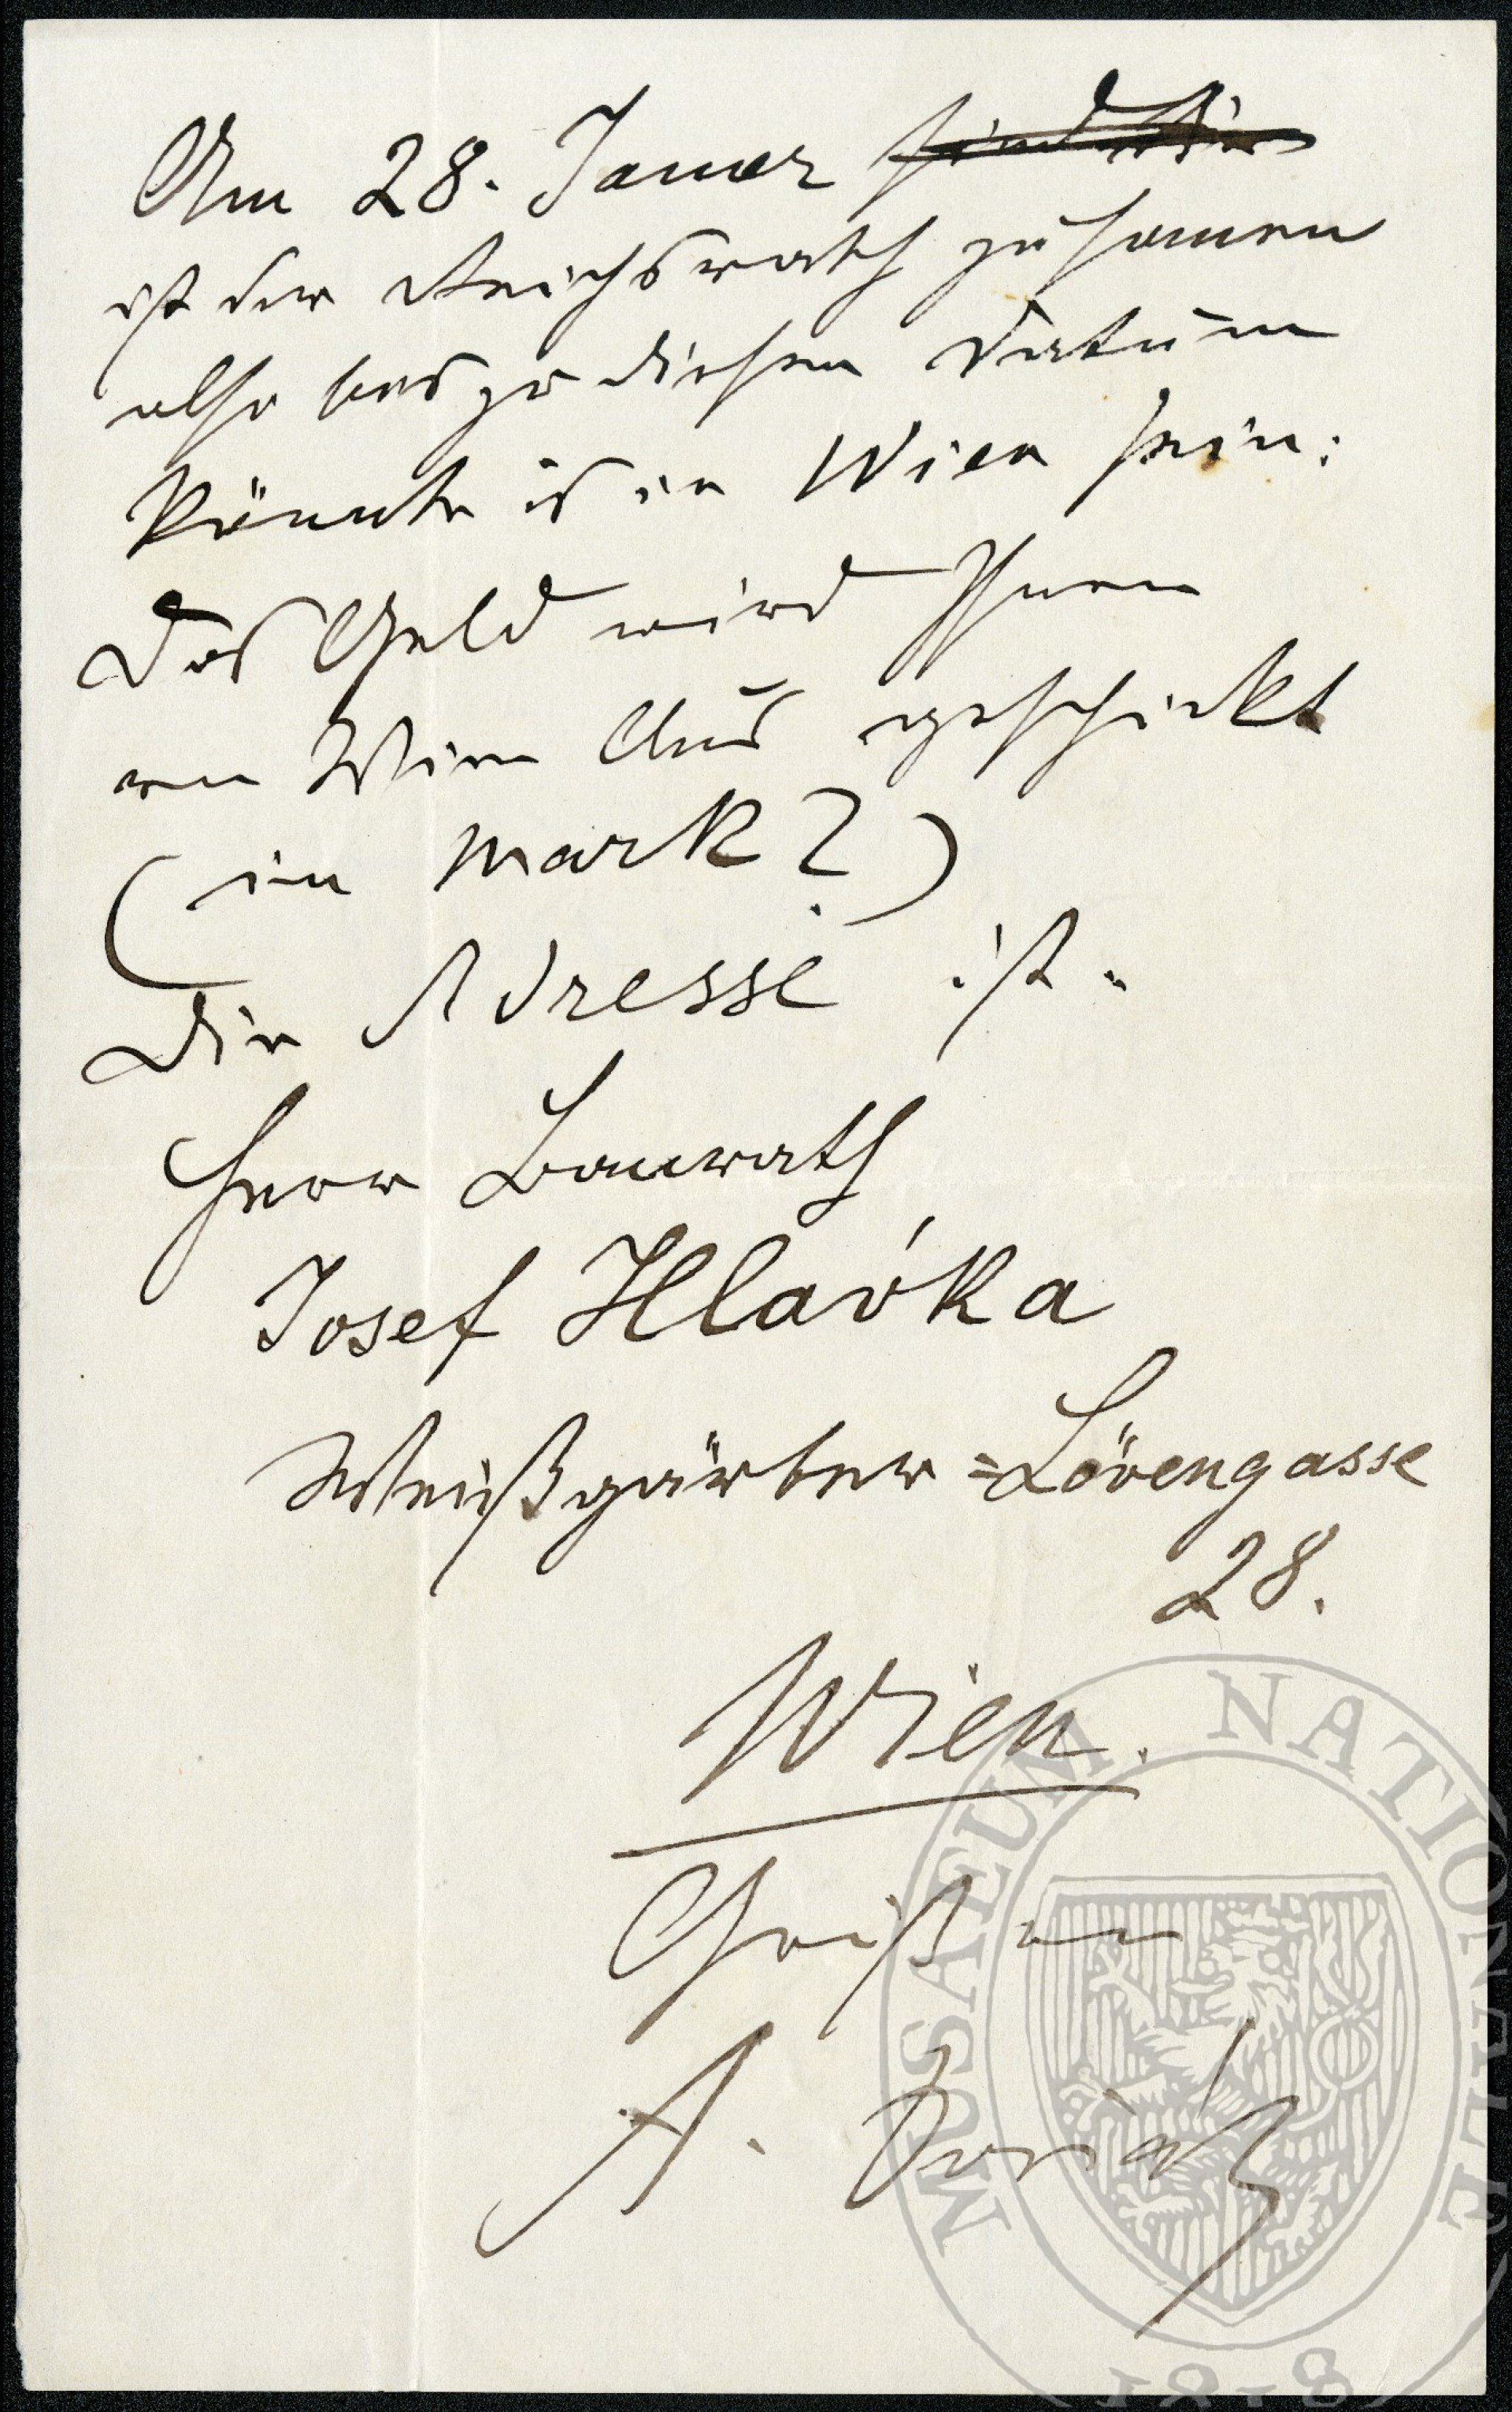 Am 28. Januar ~~sind Sie~~
ist der Reichsrath zusamen
also bis zu diesem Datum
könnte es in Wien sein.
Das Geld wird Ihnen
von Wien aus geschickt
(in Mark?)
Die Adresse ist.
Herrn Baurath
Josef Hlávka
Weißgärber=Lövengasse
28.
Wien.
A. Dvořák
MUSAEUM NATIONALE
1818